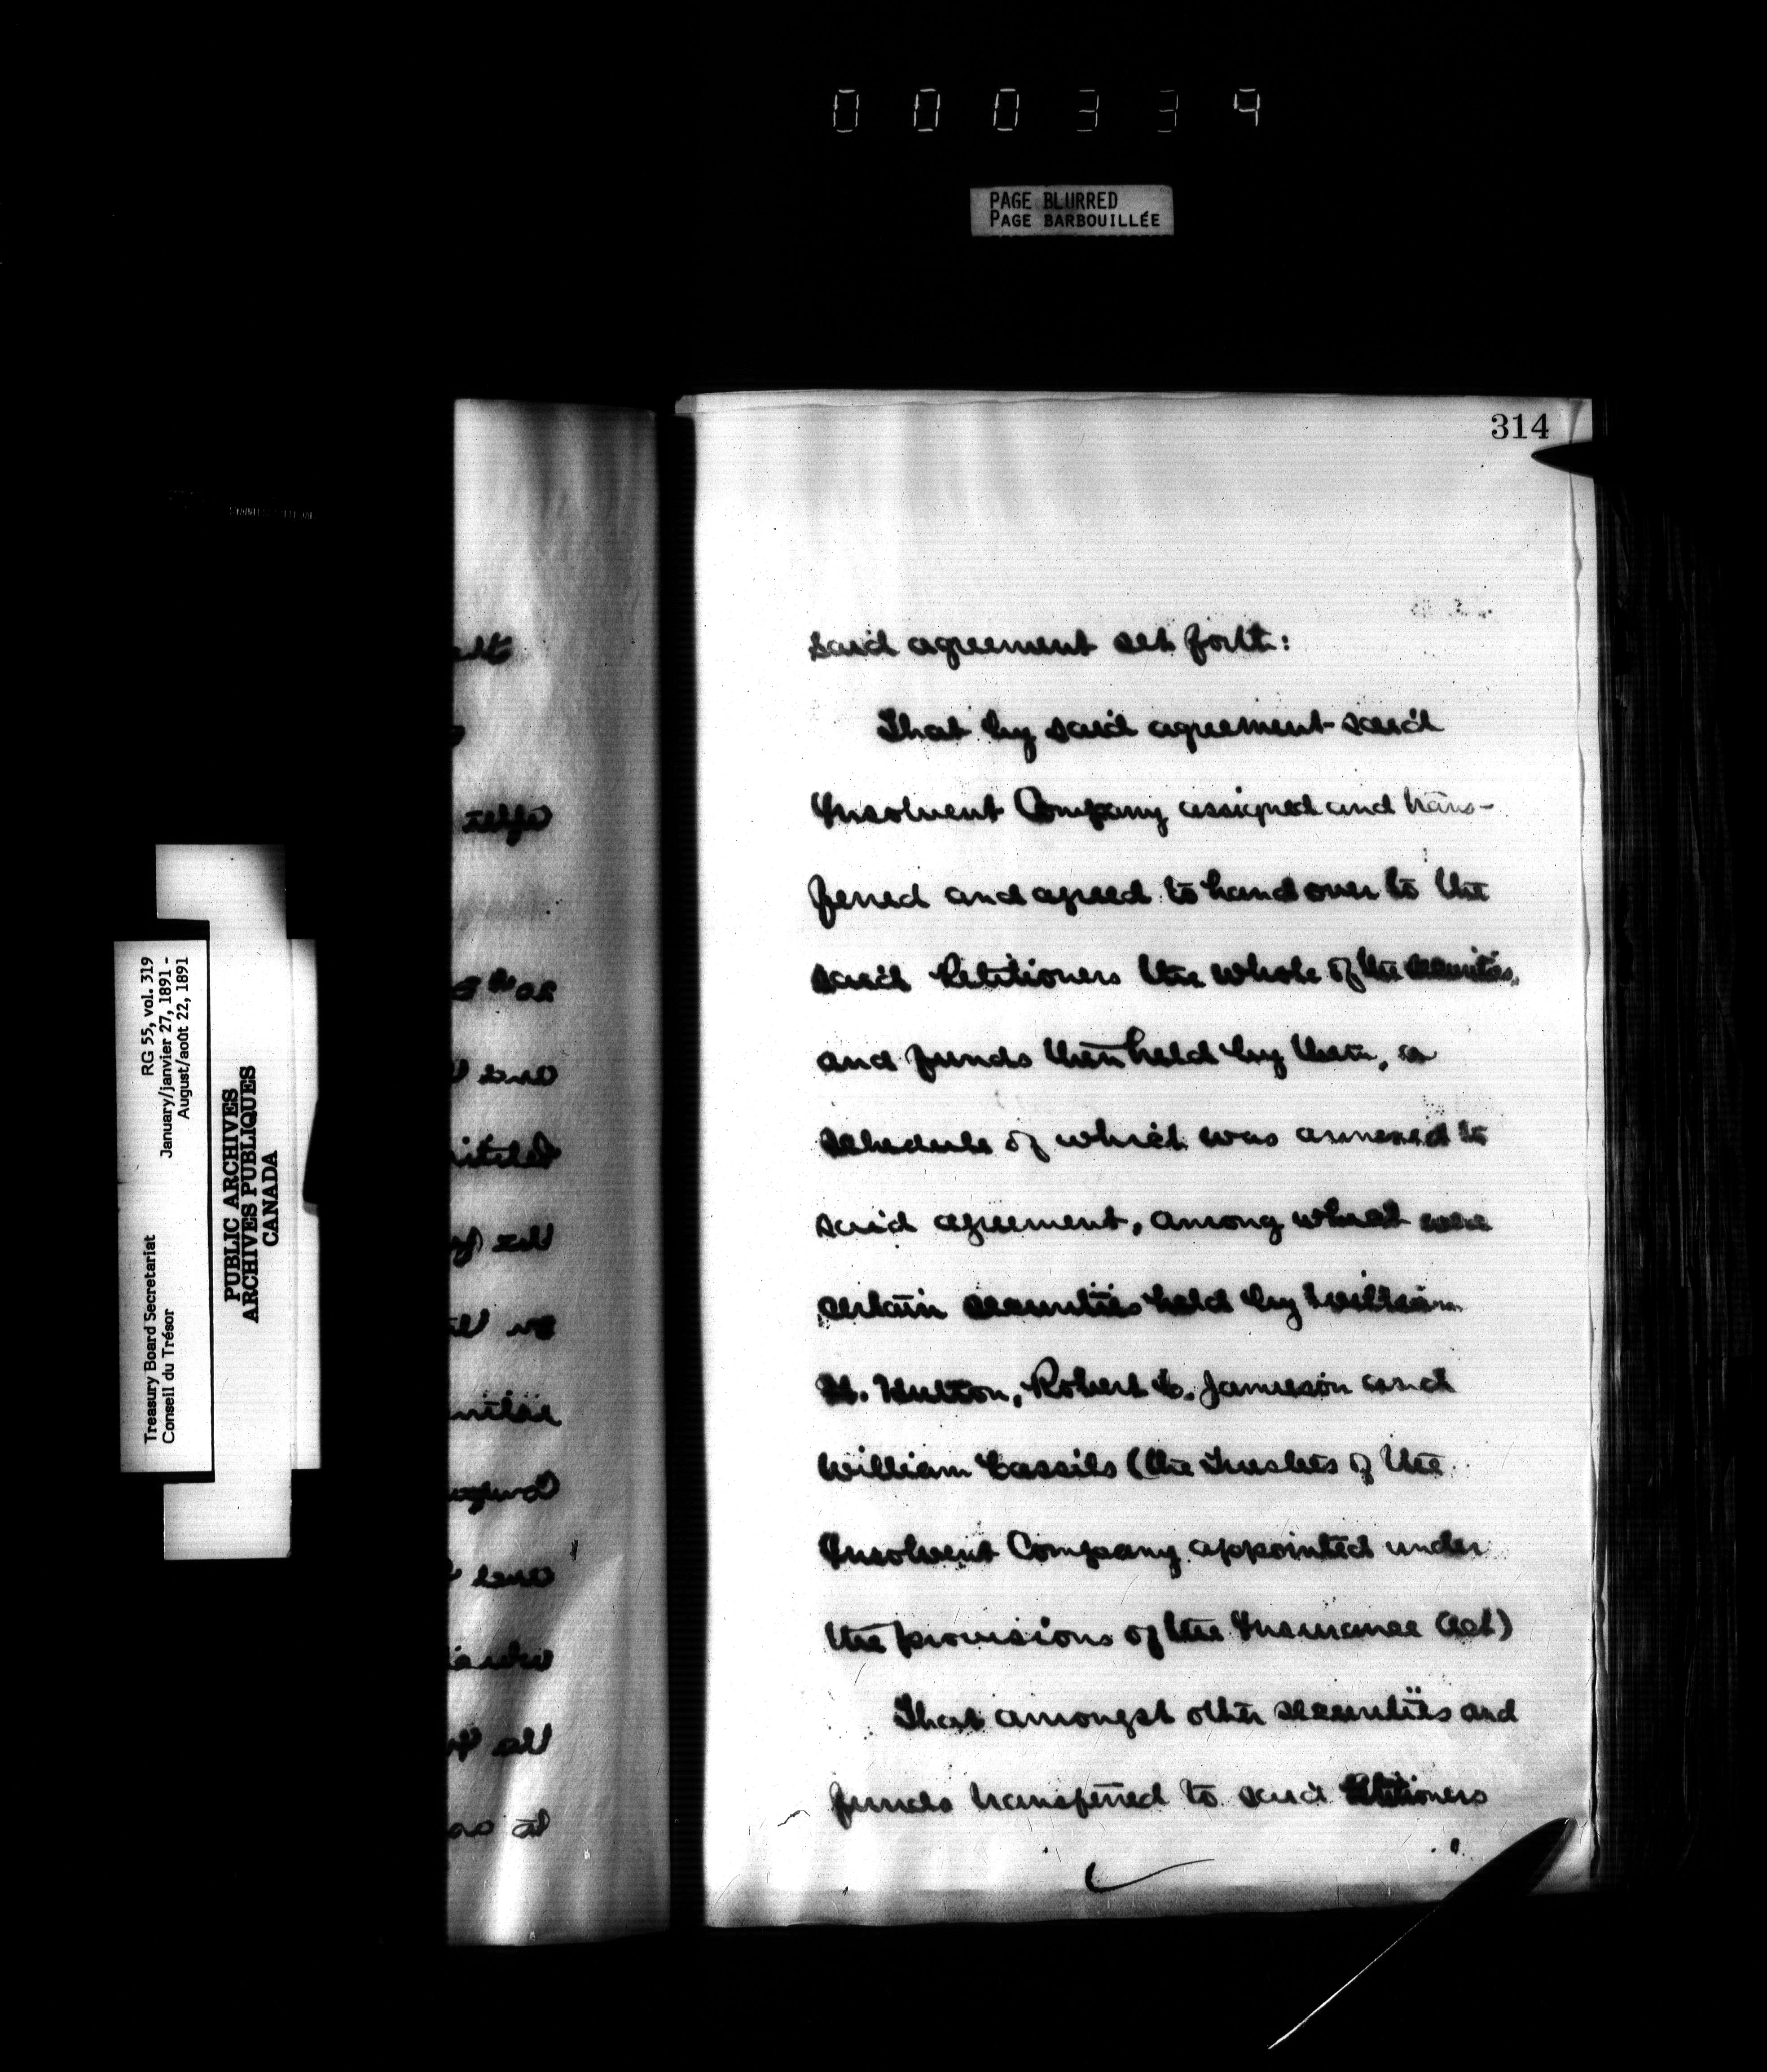 000334
PAGE BLURRED
PAGE BARBOUILLÉE
314
said agreement set forth:
That by said agreement said
Insolvent Company assigned and trans-
ferred and agreed to hand over to the
said Petitioners the whole of the securities,
and funds then held by them, a
schedule of which was annexed to
said agreement, among which were
certain securities held by William
H. Hutton, Robert C. Jamieson and
William Cassils (the Trustees of the
Insolvent Company appointed under
the provisions of the Insurance Act)
That amongst other securities and
funds transferred to said Petitioners
Treasury Board Secretariat RG 55, vol. 319
Conseil du Trésor January/janvier 27, 1891 -
August/août 22, 1891
PUBLIC ARCHIVES
ARCHIVES PUBLIQUES
CANADA